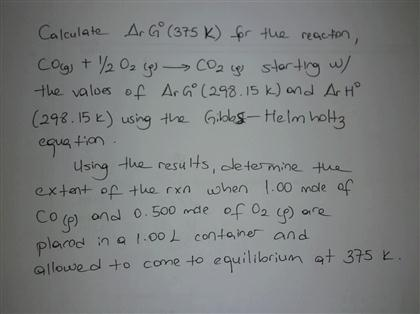 Calculate ΔrG° (375 K) for the reaction,
CO(g) + 1/2 O2 (g) → CO2 (g) starting w/
the values of ΔrG° (298.15 K) and ΔrH°
(298.15 K) using the Gibbs-Helmholtz
equation.
Using the results, determine the
extent of the rxn when 1.00 mole of
CO (g) and 0.500 mole of O2 (g) are
placed in a 1.00 L container and
allowed to come to equilibrium at 375 K.